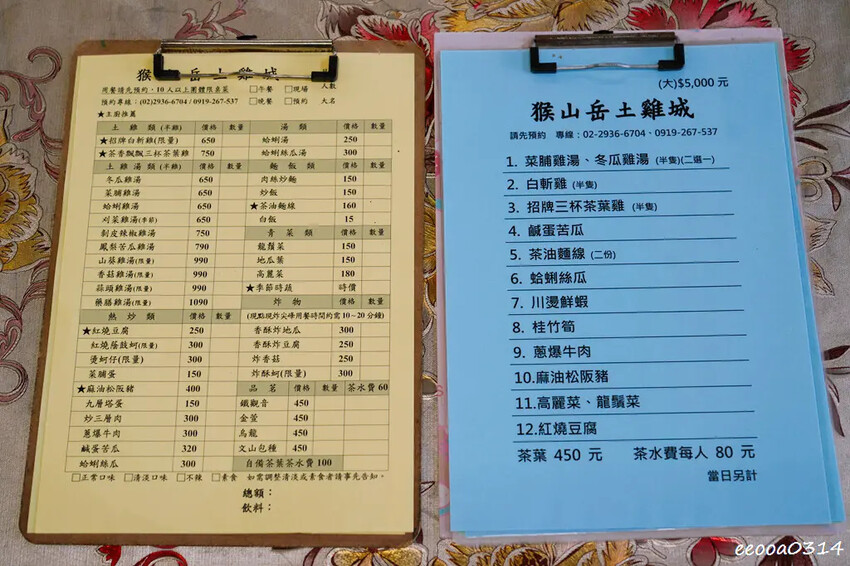 猴山岳土雞城
用餐請先預約，10人以上團體限桌菜 □午餐 □現場 人數
預約專線：(02)2936-6704 / 0919-267-537 □晚餐 □預約 大名
★主廚推薦
土雞類(半雞) 價格 數量 湯類 價格 數量
★招牌白斬雞(限量) 650 蛤蜊湯 250
★茶香飄飄三杯茶葉雞 750 蛤蜊絲瓜湯 300
土雞湯類(半雞) 價格 數量 麵飯類 價格 數量
冬瓜雞湯 650 肉絲炒麵 150
菜脯雞湯 650 炒飯 150
蛤蜊雞湯 650 ★茶油麵線 160
刈菜雞湯(季節) 650 白飯 15
剝皮辣椒雞湯 650 青菜類 價格 數量
鳳梨苦瓜雞湯 790 龍鬚菜 150
山葵雞湯(限量) 990 地瓜葉 150
香菇雞湯(限量) 990 高麗菜 180
菇頭雞湯(限量) 990 ★季節時蔬 時價
藥膳雞湯(限量) 1090 炸物 價格 數量
熱炒類 價格 數量 (現點現炸尖峰用餐時間約需10~20分鐘)
★紅燒豆腐 250 香酥炸地瓜 300
紅燒蔭豉蚵(限量) 300 香酥炸豆腐 250
燙蚵仔(限量) 300 炸香菇 250
菜脯蛋 150 炸酥蚵(限量) 300
★麻油松阪豬 400 品茗 價格 數量 茶水費60
九層塔蛋 150 鐵觀音 450
炒三層肉 300 金萱 450
蔥爆牛肉 300 烏龍 450
鹹蛋苦瓜 320 文山包種 450
蛤蜊絲瓜 300 自備茶葉茶水費100
□正常口味 □清淡口味 □不辣 □素食 如需調整清淡或素食者請事先告知。
總額：
飲料：
(大)$5,000元
猴山岳土雞城
請先預約 專線：02-2936-6704、0919-267-537
1. 菜脯雞湯、冬瓜雞湯 (半隻)(二選一)
2. 白斬雞 (半隻)
3. 招牌三杯茶葉雞 (半隻)
4. 鹹蛋苦瓜
5. 茶油麵線 (二份)
6. 蛤蜊絲瓜
7. 川燙鮮蝦
8. 桂竹筍
9. 蔥爆牛肉
10.麻油松阪豬
11.高麗菜、龍鬚菜
12.紅燒豆腐
茶葉 450 元 茶水費每人 80 元
當日另計
eeooa0314